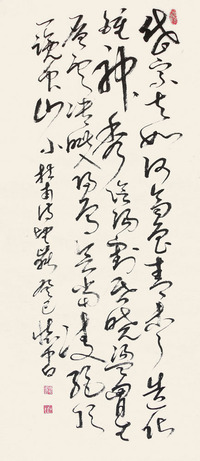 岱宗夫如何齊魯青未了造化
鍾神秀陰陽割昏曉盪胸生
層雲決眥入歸鳥會當凌絕頂
一覽眾山小杜甫詩望嶽癸巳書